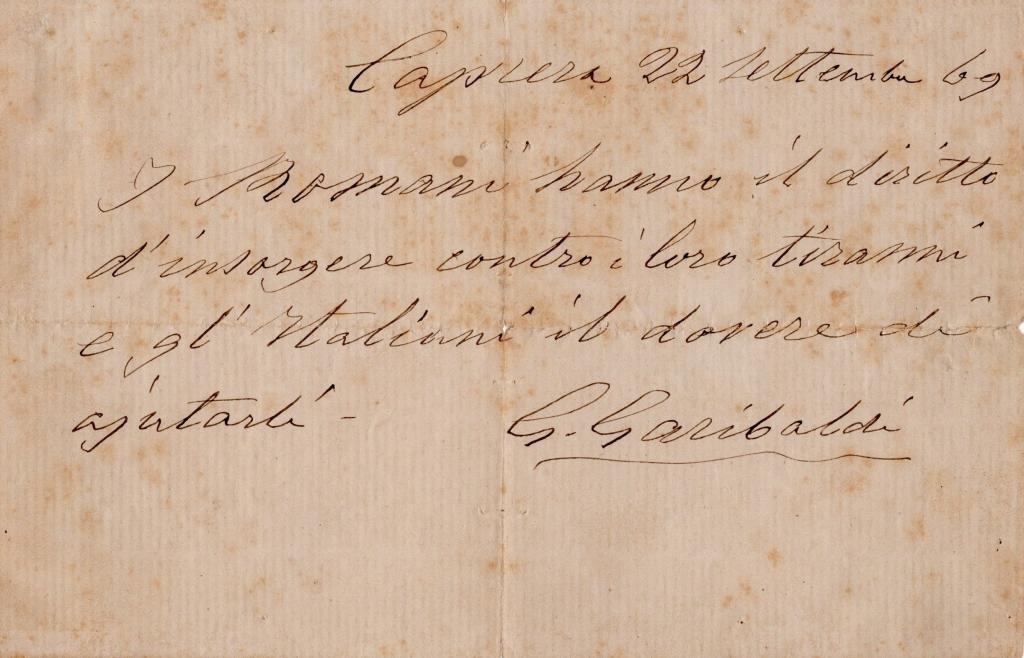 Caprera 22 Settembre 69
I Romani hanno il diritto
d'insorgere contro i loro tiranni
e gl'Italiani il dovere di
ajutarli -
G. Garibaldi